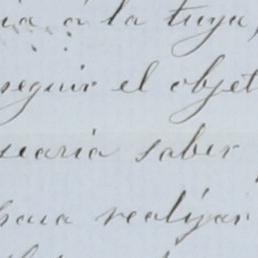 ia á la tuya,
seguir el objet
searia saber
para realizar